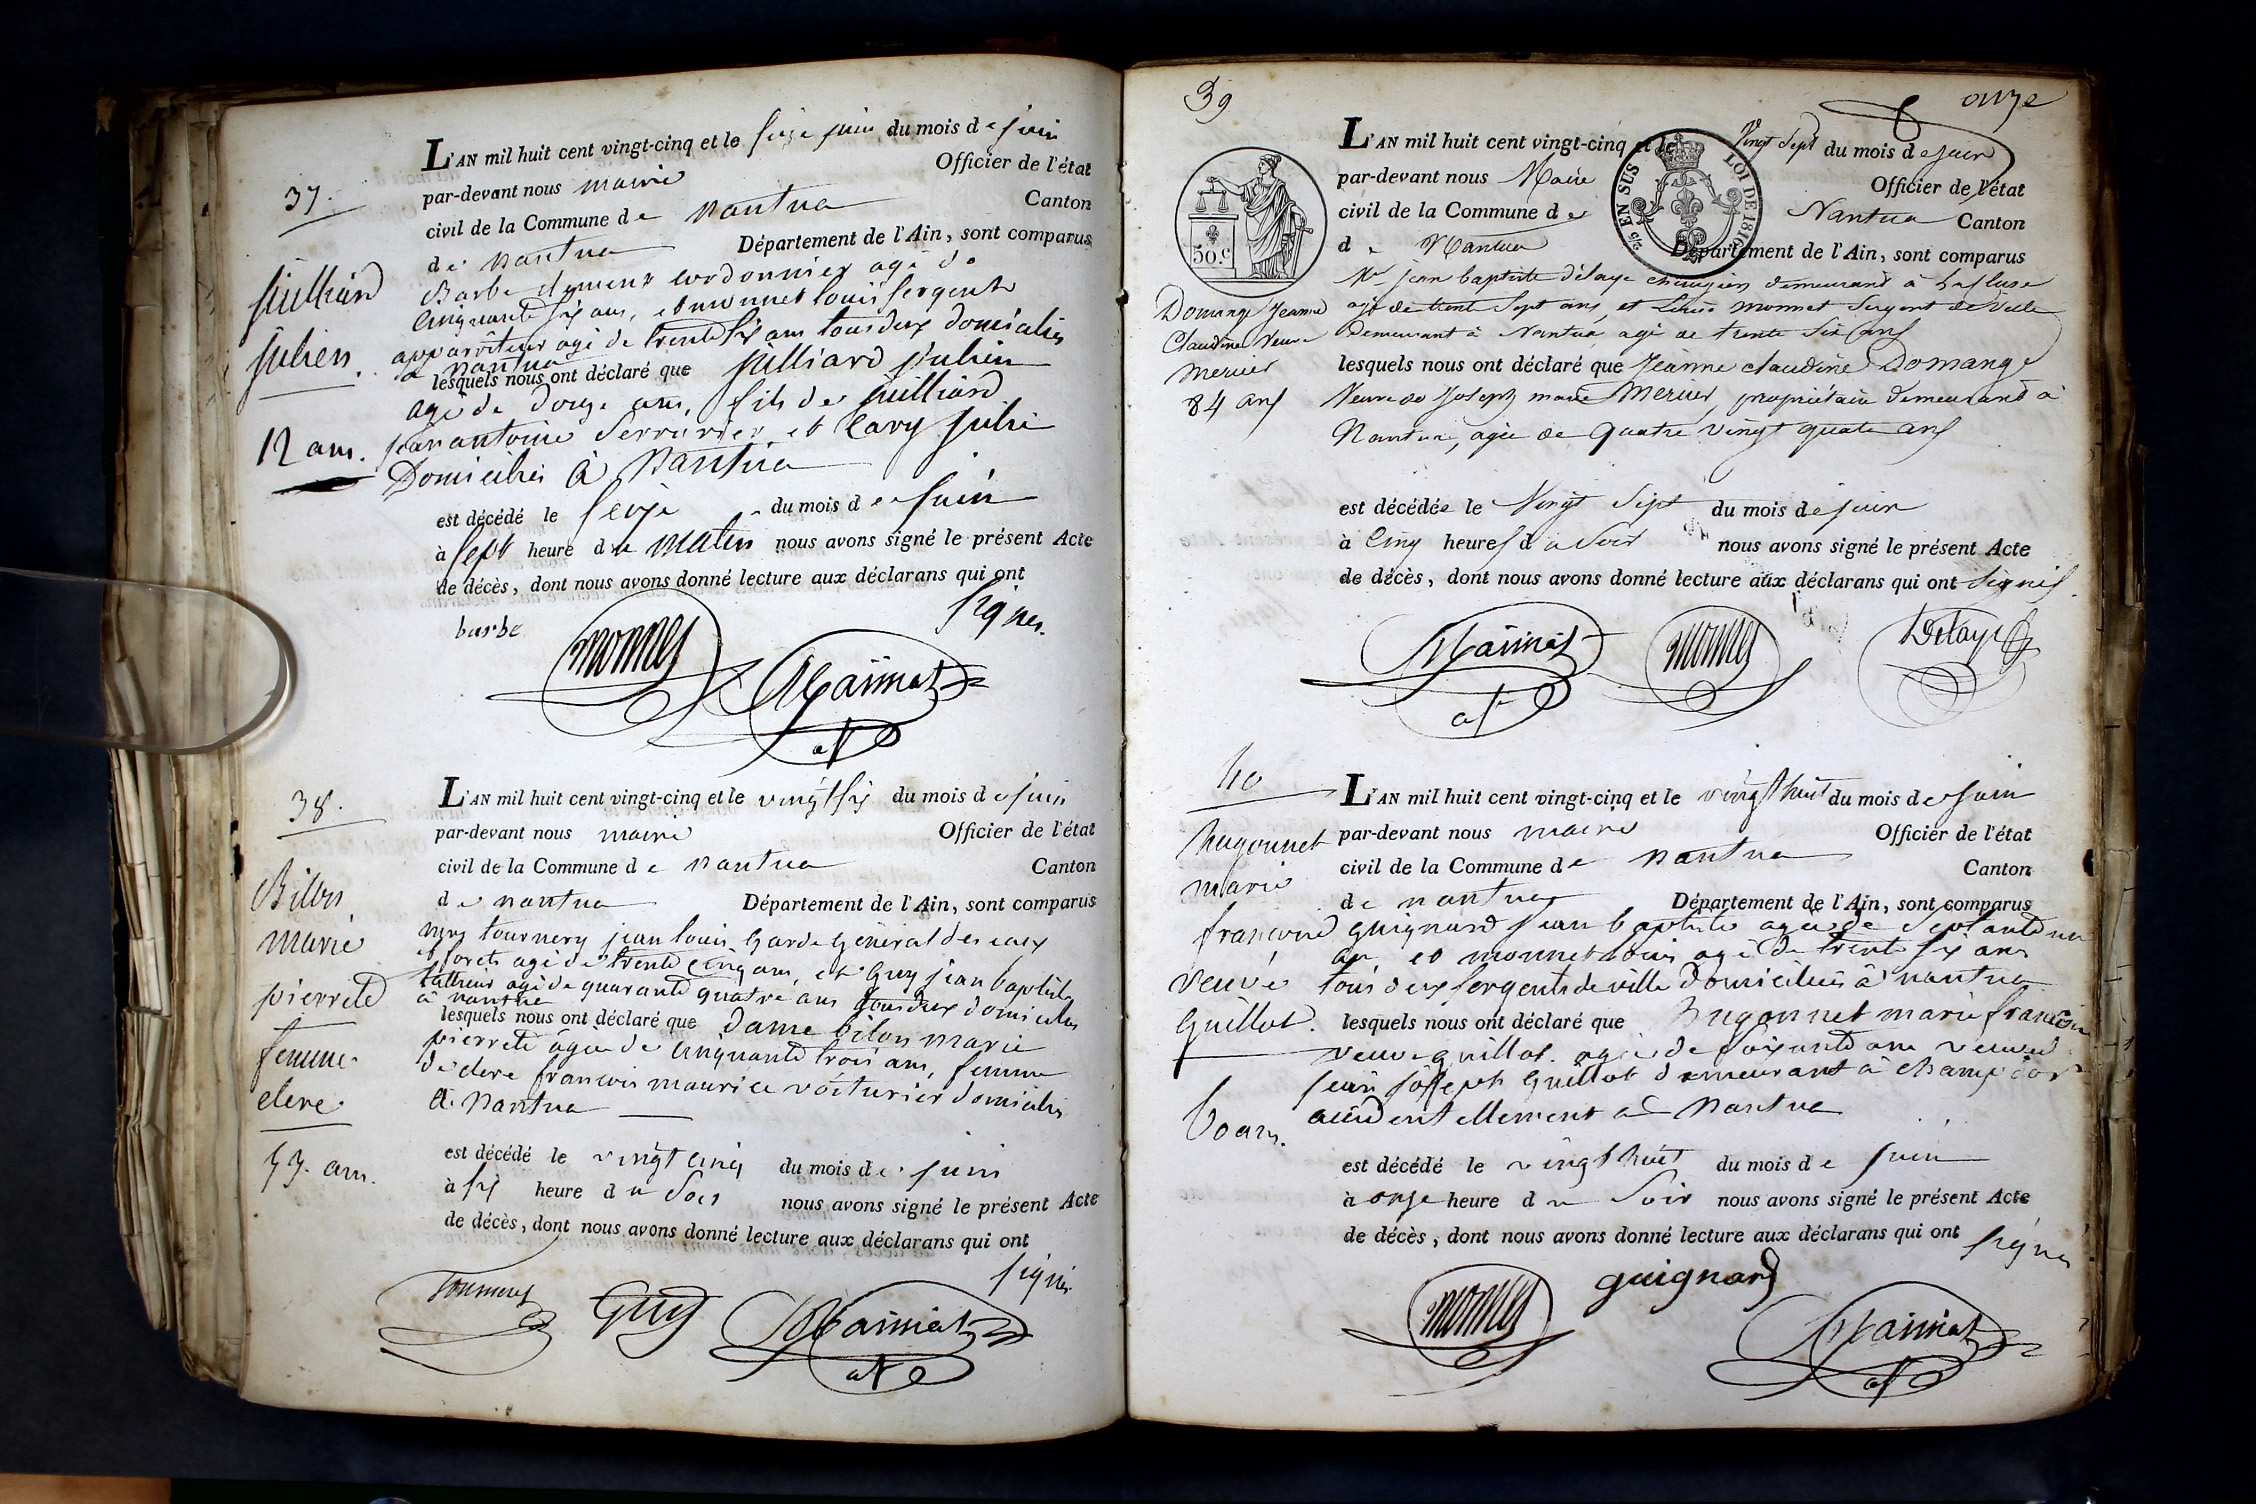 37.
L'AN mil huit cent vingt-cinq et le seize juin du mois de juin
par-devant nous maire Officier de l'état
civil de la Commune de nantua Canton
de nantua Département de l'Ain, sont comparus
Barbe clement cordonnier agé de
cinquante six ans, et monnet louis sergent
appariteur agé de trente six ans tous deux domiciliés
a nantua
lesquels nous ont déclaré que juilliard julien
agé de douze ans, fils de juilliard
jean antoine serrurier, et Cavy julie
Domiciliés à nantua
juilliard
julien.
12 ans.
est décédé le seize du mois de juin
à sept heure du matin nous avons signé le présent Acte
de décès, dont nous avons donné lecture aux déclarans qui ont
signés.
barbe monnet
38.
L'AN mil huit cent vingt-cinq et le vingt six du mois de juin
par-devant nous maire Officier de l'état
civil de la Commune de nantua Canton
de nantua Département de l'Ain, sont comparus
mrs tournery jean louis Garde Général des eaux
et forets agé de trente cinq ans, et Guy jean baptiste
tailleur agé de quarante quatre ans tous deux domiciliés
à nantua
lesquels nous ont déclaré que dame bilon marie
pierrete âgée de cinquante trois ans, femme
de clere francois maurice voiturier domicilié
à nantua
Bilon
marie
pierrete
femme
clere.
53. ans.
est décédé le vingt cinq du mois de juin
à six heure du soir nous avons signé le présent Acte
de décès, dont nous avons donné lecture aux déclarans qui ont
signés.
Guy
39
onze
L'AN mil huit cent vingt-cinq et le vingt sept du mois de juin
par-devant nous Maire Officier de l'état
civil de la Commune de Nantua Canton
de Nantua Département de l'Ain, sont comparus
50.c
EN SUS LOI DE 1816
Mr jean baptiste delaye chirurgien demeurant à la cluse
agé de trente sept ans, et Louis monnet sergent de ville
demeurant à Nantua agé de trente six ans
lesquels nous ont déclaré que jeanne claudine Domange
Veuve de joseph marie Mercier, propriétaire demeurant à
Nantua, agée de quatre vingt quatre ans
Domange Jeanne
Claudine veuve
mercier
84 ans
est décédée le vingt sept du mois de juin
à cinq heures du soir nous avons signé le présent Acte
de décès, dont nous avons donné lecture aux déclarans qui ont signés.
monnet Delaye
40
L'AN mil huit cent vingt-cinq et le vingt huit du mois de juin
par-devant nous maire Officier de l'état
civil de la Commune de nantua Canton
de nantua Département de l'Ain, sont comparus
guignard jean baptiste agé de septante un
an et monnet louis agé de trente six ans
tous deux sergents de ville domiciliés à nantua
lesquels nous ont déclaré que hugonnet marie francoise
veuve guillot. agée de soixante ans veuve de
jean josseph guillot demeurant à champdor
accidentellement à nantua
hugonnet
marie
francoise
veuve
guillot.
60 ans.
est décédé le vingt huit du mois de juin
à onze heure du soir nous avons signé le présent Acte
de décès, dont nous avons donné lecture aux déclarans qui ont
signés
monnet guignard